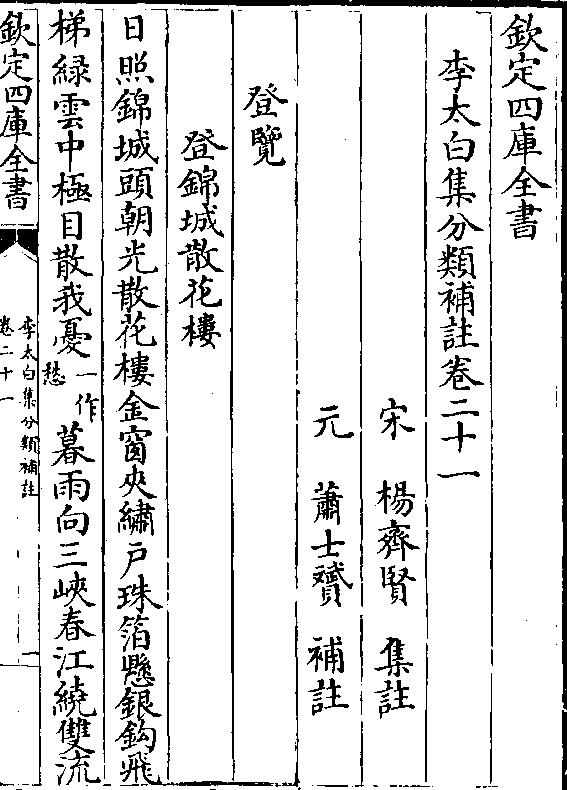 欽定四庫全書
李太白集分類補註卷二十一
宋 楊齊賢 集註
元 蕭士贇 補註
登覽
登錦城散花樓
日照錦城頭朝光散花樓金窗夾繡户珠箔懸銀鈎飛
梯綠雲中極目散我憂一作愁暮雨向三峽春江繞雙流
欽定四庫全書
李太白集分類補註
卷二十一
一